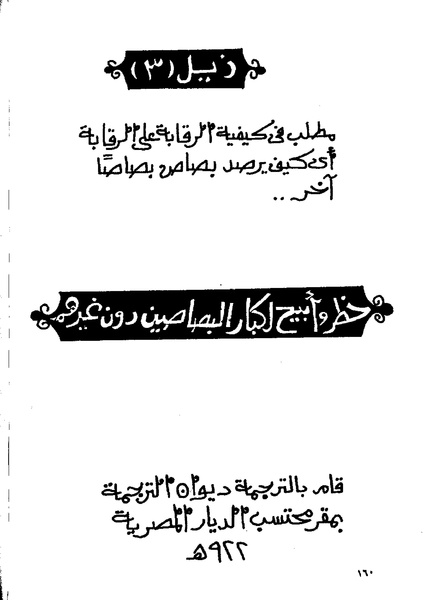 ذيل (٣)
مطلب في كيفية المراقابة على المراقابة
أي كيف يرصد بصاص بصاصًا
آخر ..
حظر وأبيح لكبار البصاصين دون غيرهم
قام بالترجمة ديوان الترجمة
بمقر محتسب الديار المصرية
٩٢٢هـ
١٦٠